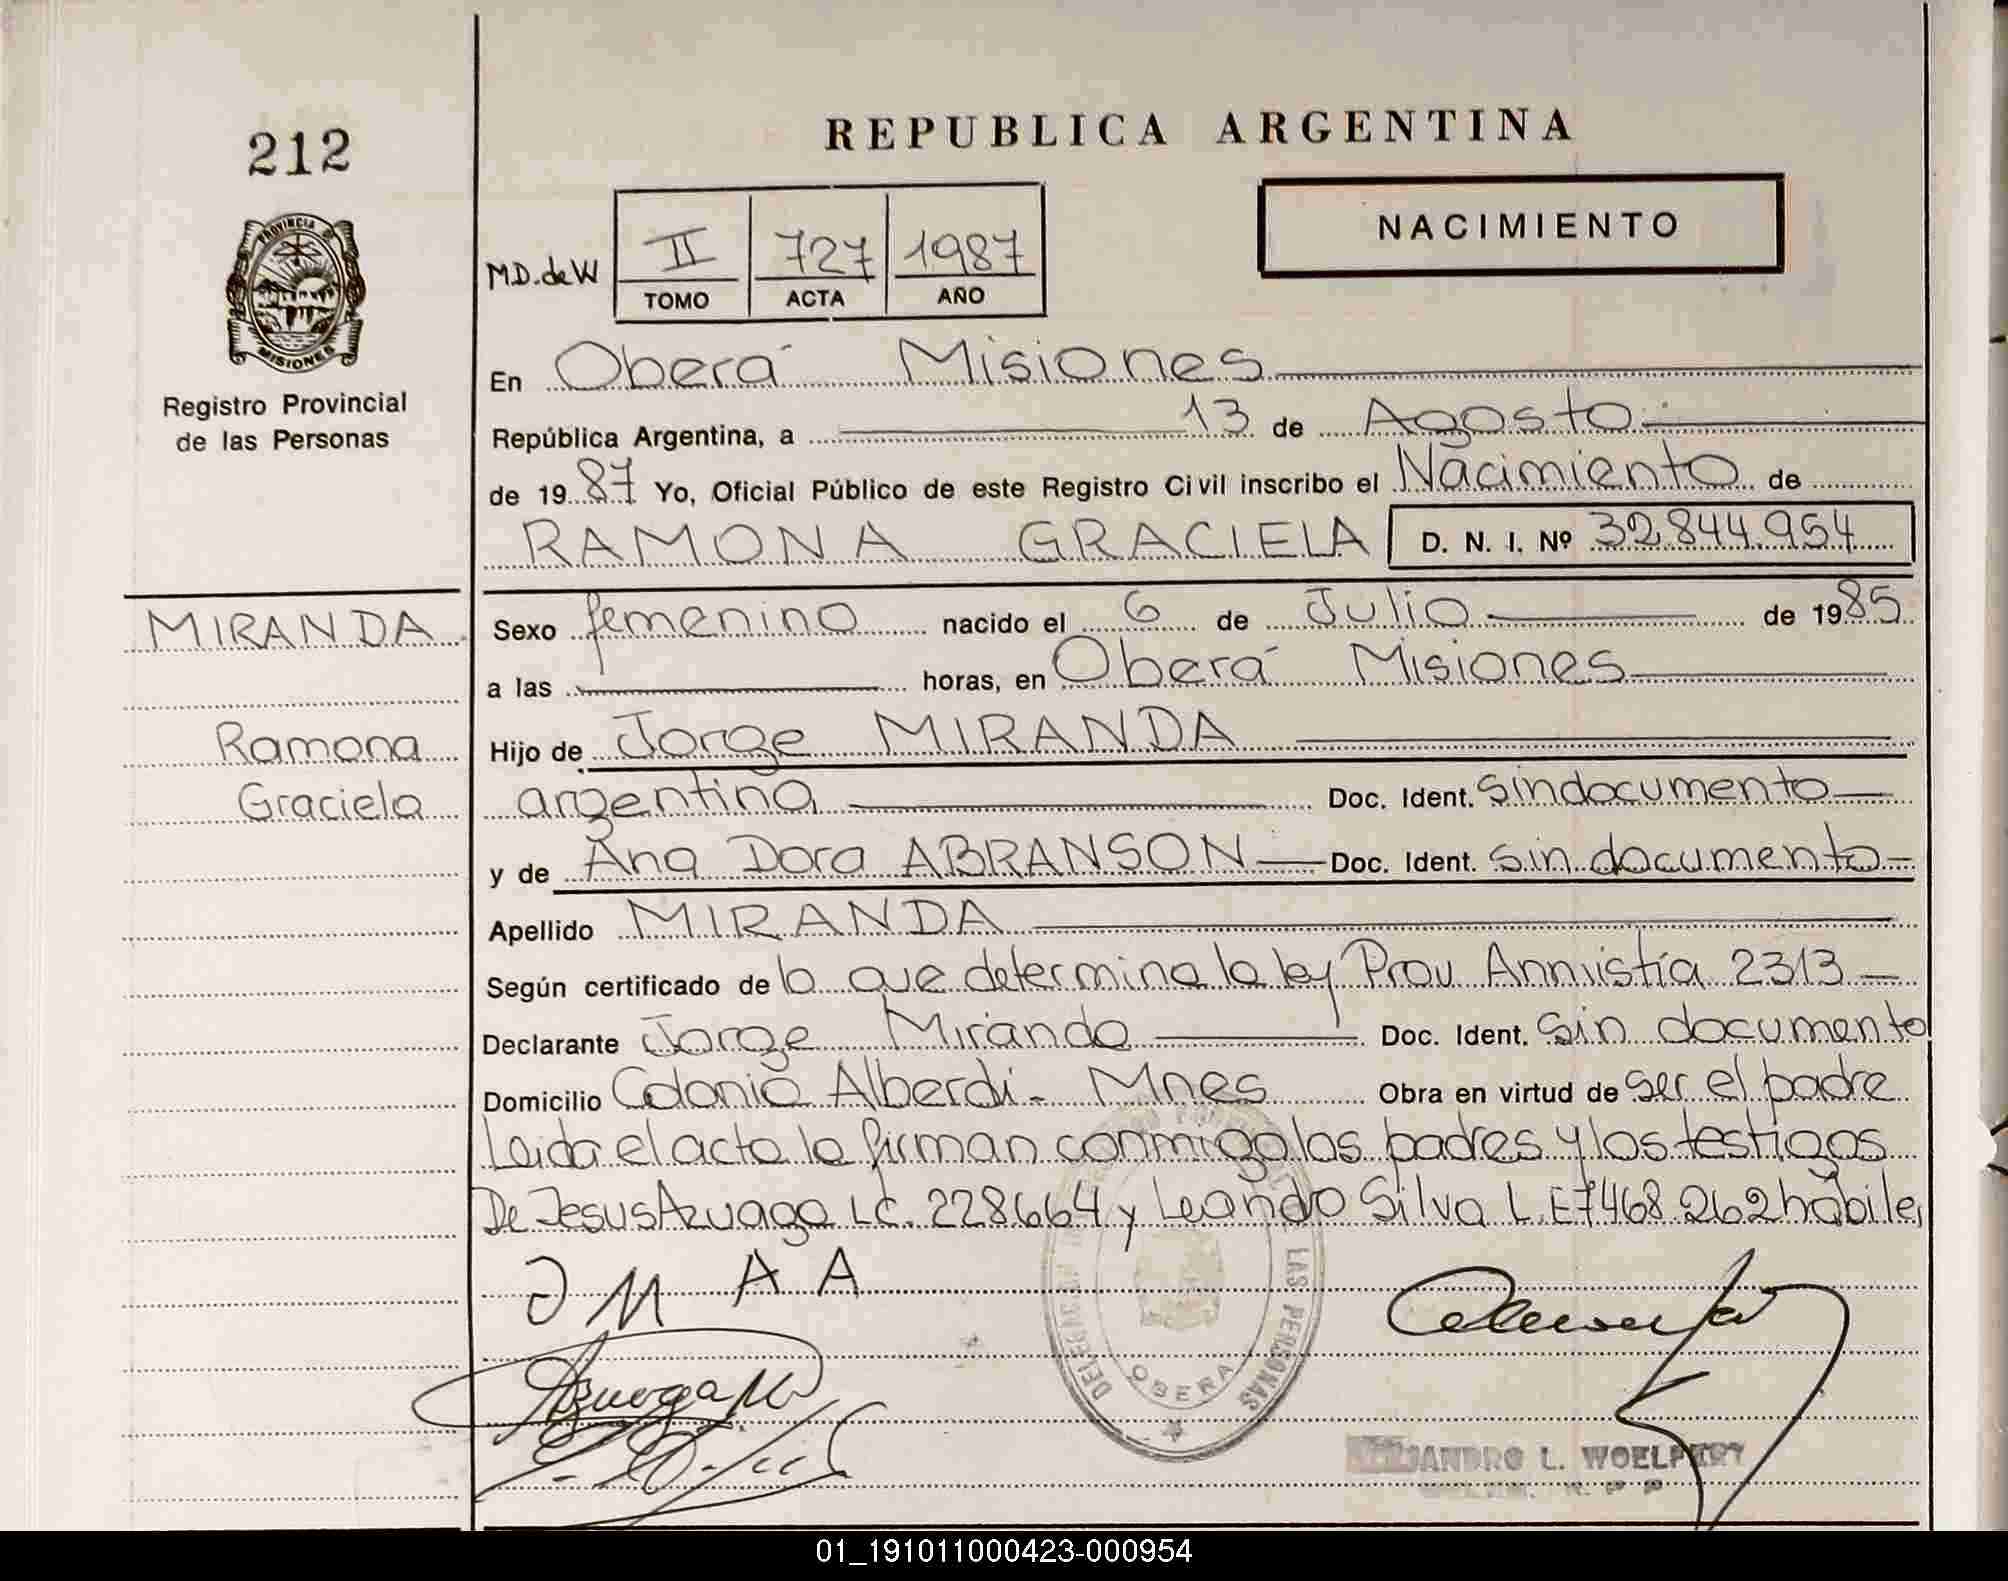 212
REPUBLICA ARGENTINA
NACIMIENTO
M.D. de W
II 727 1987
TOMO ACTA AÑO
PROVINCIA DE
MISIONES
Registro Provincial
de las Personas
En Oberá Misiones
República Argentina, a 13 de Agosto
de 1987 Yo, Oficial Público de este Registro Civil inscribo el Nacimiento de
RAMONA GRACIELA D. N. I. Nº 32.844.954
MIRANDA
Ramona
Graciela
Sexo femenino nacido el 6 de Julio de 1985
a las horas, en Oberá Misiones
Hijo de Jorge MIRANDA
argentina Doc. Ident. sindocumento
y de Ana Dora ABRANSON Doc. Ident. sin documento
Apellido MIRANDA
Según certificado de lo que determina la ley Prov. Amnistía 2313
Declarante Jorge Miranda Doc. Ident. Sin documento
Domicilio Colonia Alberdi - Mnes Obra en virtud de ser el padre
Leida el acta la firman conmigo los padres y los testigos
De Jesus Azuaga LC. 228664 y Leandro Silva L.E 7468262 hábiles
J M A A
DELEGACION
LAS PERSONAS
OBERA
JANDRO L. WOELPERT
01_191011000423-000954